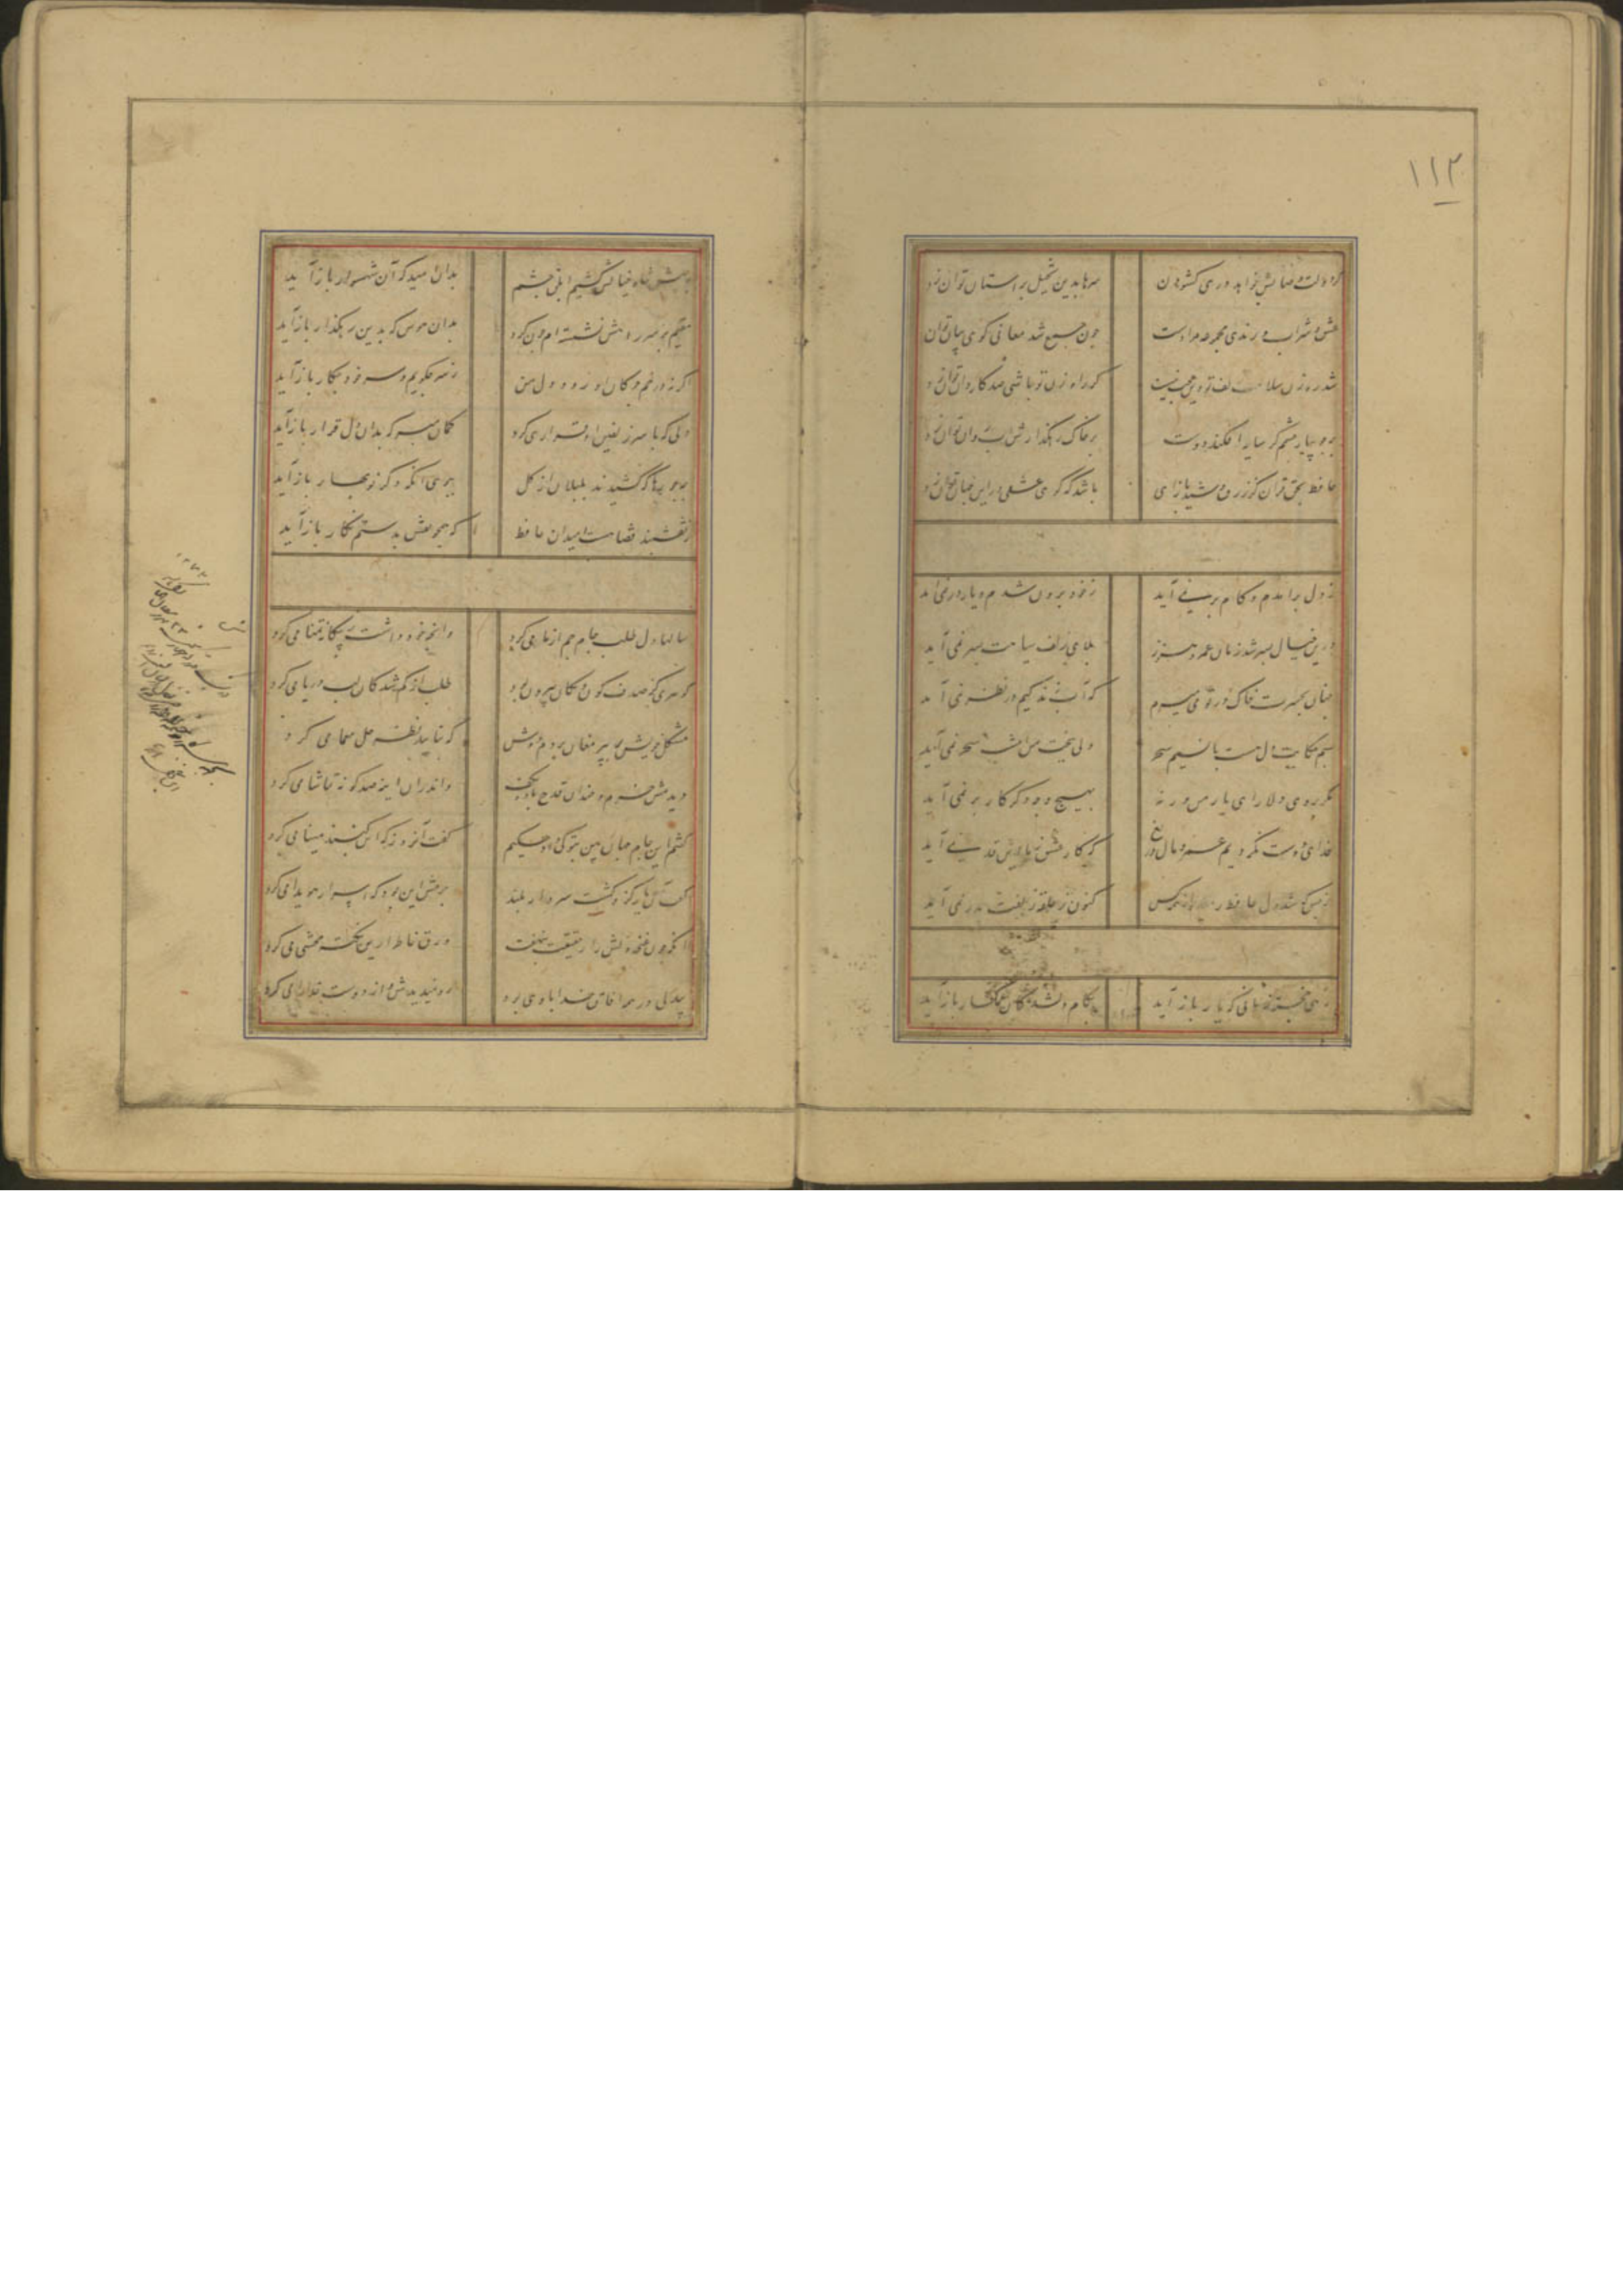 ۱۱۲
گر دولت وصالش خواهد دری کشودن
سرها بدین تخیل بر استان توان زد
عشق و شراب و رندی مجموعه مرادست
چون جمع شد معانی کوی بیان توان
شد رهزن سلامت زلف تو وین عجب نیست
کر راه زن تو باشی صد کاروان توان زد
بر جویبار چشمم کر سایه افکند دوست
بر خاک رهکذارش اب روان توان زد
حافظ بحق قران کز زرق و شید بازای
باشد که کوی عیشی در این جهان توان زد
ز دل برامدم و کام بر نمی آید
ز خود برون شدم و یار در نمی آید
درین خیال بسر شد زمان عمر و هنوز
بلای زلف سیاهت بسر نمی آید
چنان بحسرت خاک در تو می میرم
که آب زندگیم در نظر نمی آید
بسم حکایت دل هست با نسیم سحر
ولی ببخت من امشب سحر نمی آید
مکر بروی دلارای یار من ورنه
بهیچ وجه دکر کار بر نمی آید
فدای دوست نکردیم عمر و مال دریغ
که کار عشق ز ما این قدر نمی آید
ز بس که شد دل حافظ رمیده از همه کس
کنون ز حلقه زلفت بدر نمی آید
زهی خجسته زمانی که یار باز آید
بکام غمزدکان غمکسار باز آید
به پیش شاه خیالش کشیدم ابلق چشم
بدان امید که آن شهسوار باز آید
مقیم بر سر راهش نشسته ام چون کرد
بدان هوس که بدین رهکذار باز آید
اگر نه در خم چوکان او رود دل من
ز سر چکویم و سر خود چکار باز آید
دلی که با سر زلفین او قراری کرد
کمان مبر که بدان دل قرار باز آید
چه جورها که کشیدند بلبلان از
ببوی انکه دکر نوبهار باز آید
ز نقشبند قضا هست امید آن حافظ
که همچو نقش بدستم نکار باز آید
سالها دل طلب جام جم از ما می کرد
وانچه خود داشت ز بیکانه تمنا می کرد
کوهری کز صدف کون و مکان بیرون بود
طلب از کم شدکان لب دریا می کرد
مشکل خویش بر پیر مغان بردم دوش
کو بتایید نظر حل معما می کرد
دیدمش خرم و خندان قدح باده بکف
واندران اینه صد کونه تماشا می کرد
کفتم این جام جهان بین بتو کی داد حکیم
کفت آنروز که این کنبد مینا می کرد
کفت آن یار کزو کشت سر دار بلند
جرمش این بود که اسرار هویدا می کرد
انکه چون غنچه دلش راز حقیقت بنهفت
ورق خاطر ازین نکته محشی می کرد
بیدلی در همه افاق خدا با وی بود
او نمیدیدش و از دوست خدارا می کرد